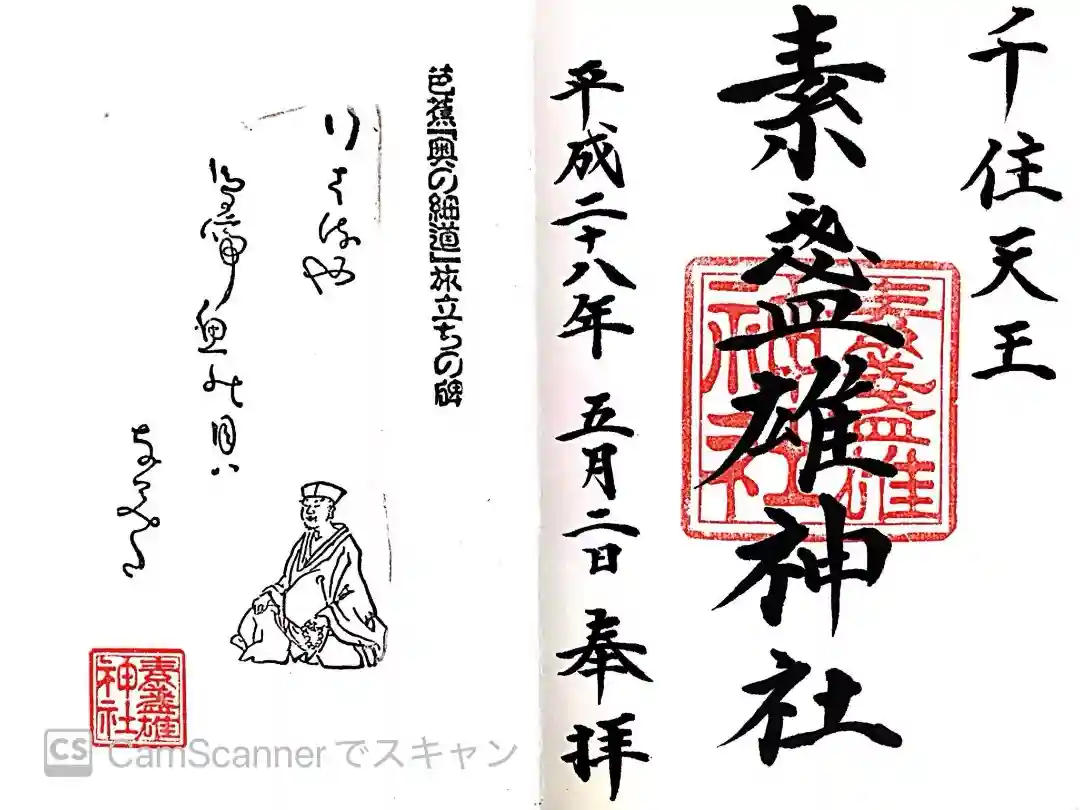 千住天王
素盞雄神社
素盞雄
神社
平成二十八年 五月二日 奉拝
芭蕉『奥の細道』旅立ちの碑
行はるや
鳥啼魚の目は
なみだ
素盞雄
神社
CS CamScannerでスキャン